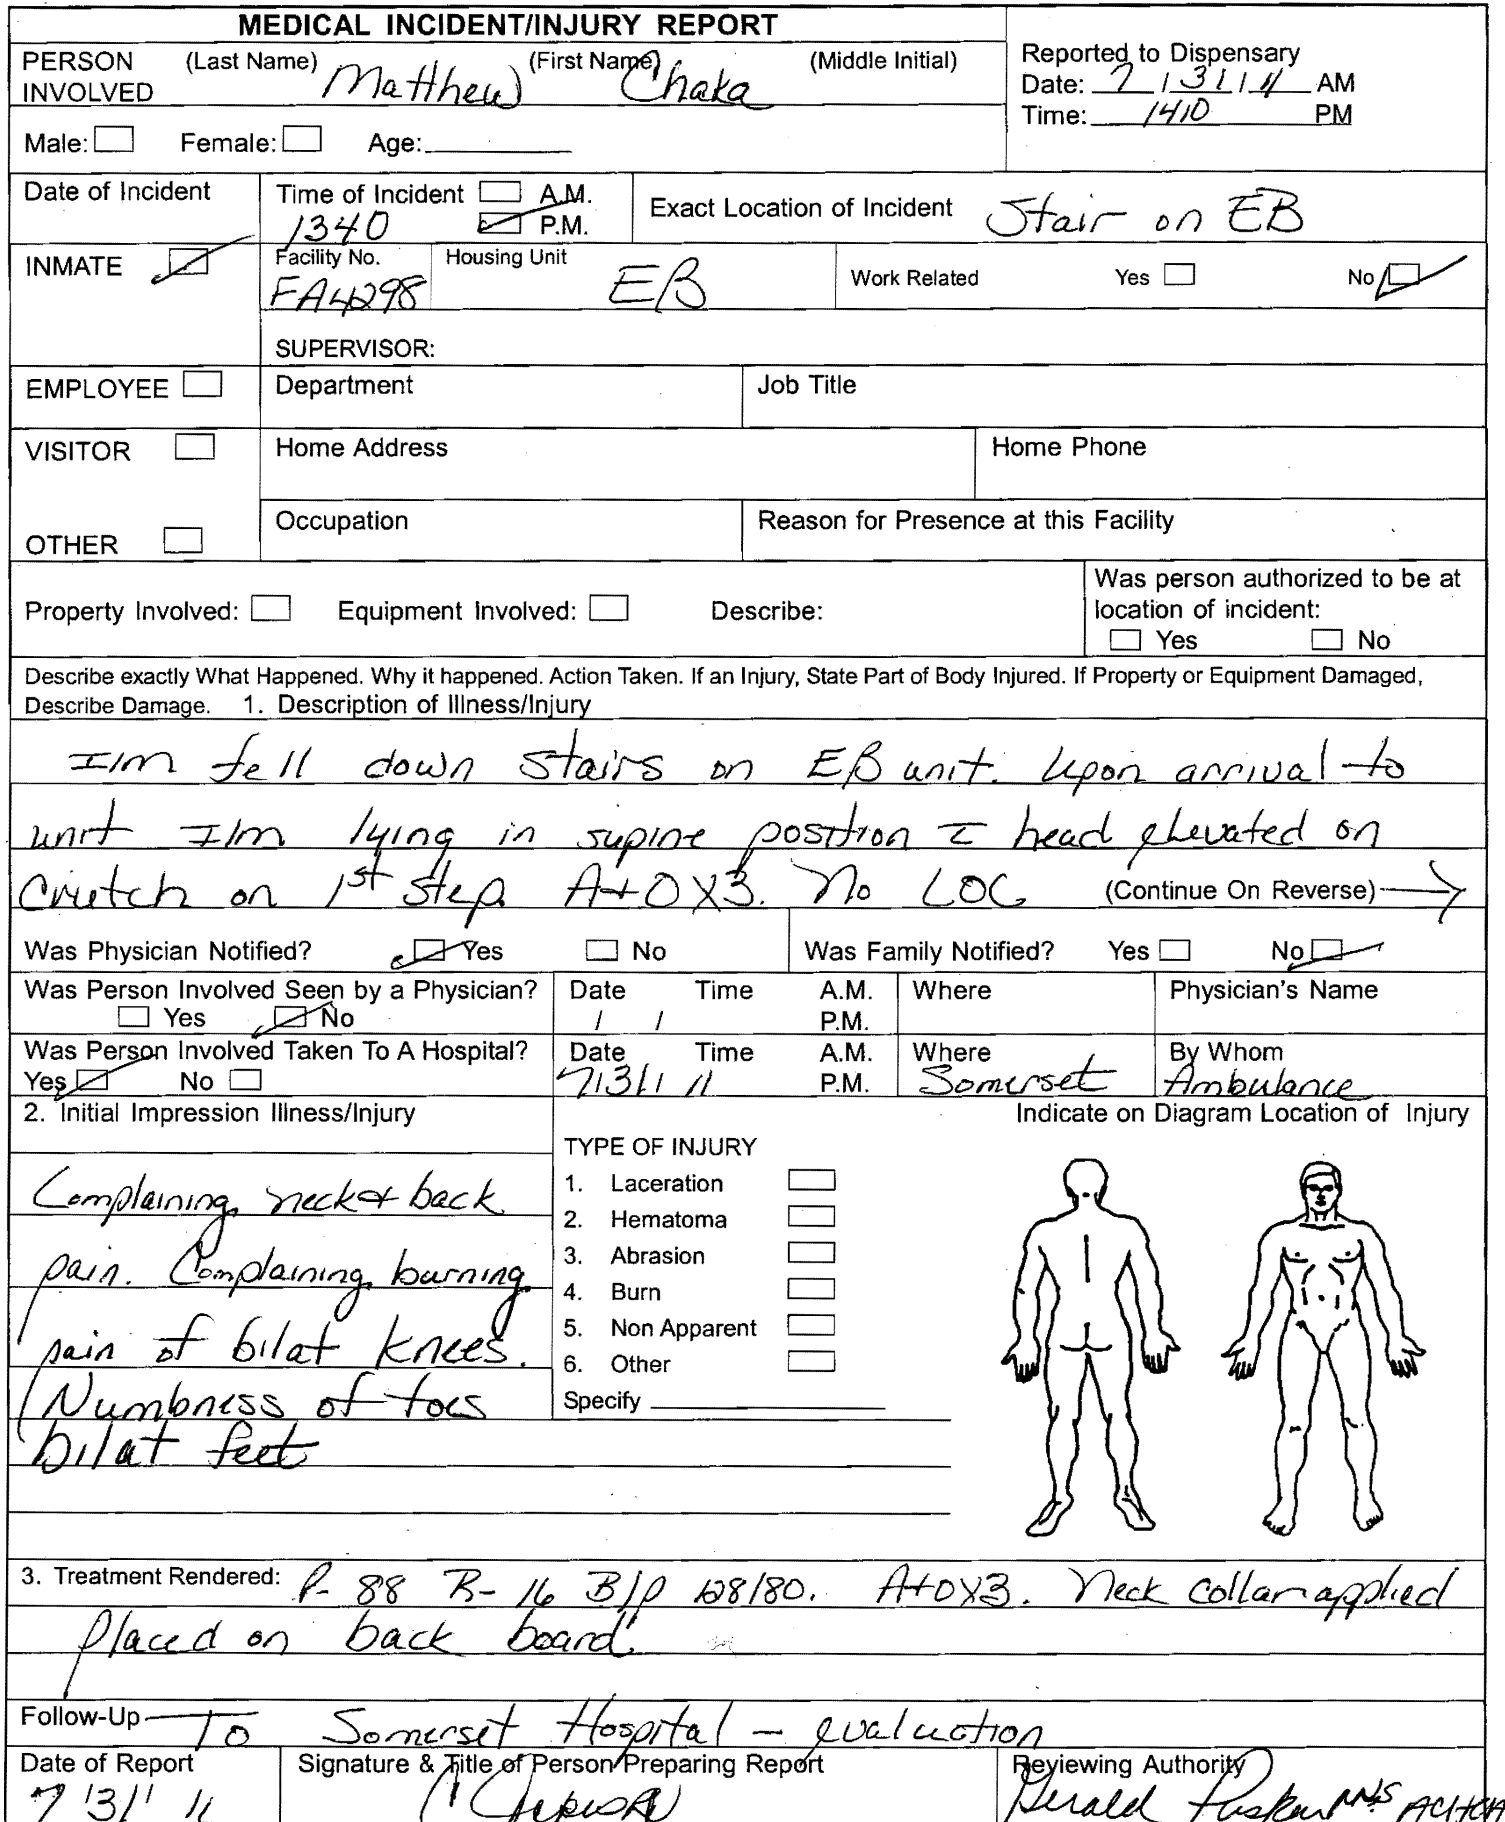 MEDICAL INCIDENT/INJURY REPORT
PERSON INVOLVED (Last Name) Matthew (First Name) Chaka (Middle Initial)
Reported to Dispensary
Date: 7/31/11 AM
Time: 1410 PM
Male: Female: Age:
Date of Incident
Time of Incident A.M.
1340 P.M.
Exact Location of Incident Stair on EB
INMATE
Facility No. FA4298
Housing Unit EB
Work Related Yes No
SUPERVISOR:
EMPLOYEE Department Job Title
VISITOR Home Address Home Phone
OTHER Occupation Reason for Presence at this Facility
Property Involved: Equipment Involved: Describe:
Was person authorized to be at
location of incident:
Yes No
Describe exactly What Happened. Why it happened. Action Taken. If an Injury, State Part of Body Injured. If Property or Equipment Damaged,
Describe Damage. 1. Description of Illness/Injury
I/m fell down stairs on EB unit. Upon arrival to
unit I/m lying in supine position c head elevated on
Crutch on 1st step. A+OX3. No LOC (Continue On Reverse)
Was Physician Notified? Yes No Was Family Notified? Yes No
Was Person Involved Seen by a Physician? Date Time A.M. Where Physician's Name
Yes No / / P.M.
Was Person Involved Taken To A Hospital? Date Time A.M. Where By Whom
Yes No 7/31/11 P.M. Somerset Ambulance
2. Initial Impression Illness/Injury
Complaining neck + back
pain. Complaining burning
pain of bilat knees.
Numbness of toes
bilat feet
TYPE OF INJURY
1. Laceration
2. Hematoma
3. Abrasion
4. Burn
5. Non Apparent
6. Other
Specify
Indicate on Diagram Location of Injury
3. Treatment Rendered: P- 88 R- 16 B/P 128/80. A+OX3. Neck collar applied
placed on back board.
Follow-Up To Somerset Hospital - evaluation
Date of Report Signature & Title of Person Preparing Report Reviewing Authority
7/31/11 Gerald